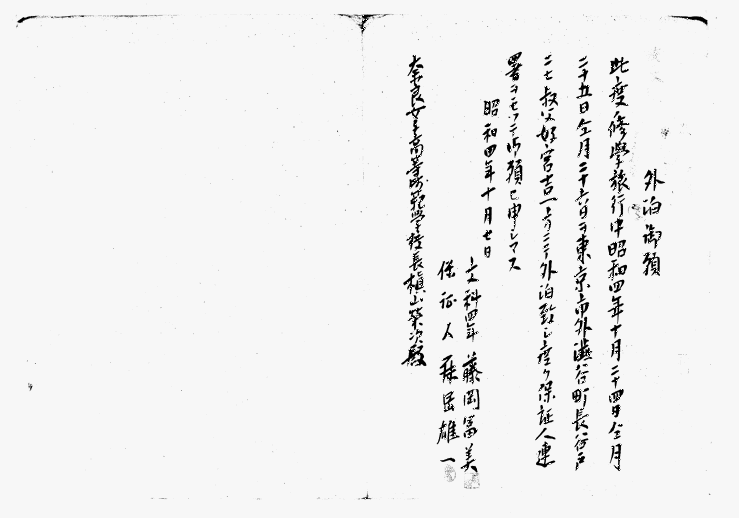 外泊御願
此度修學旅行中昭和四年十月二十四日仝月
二十五日仝月二十六日ヲ東京市外澁谷町長谷戸
二七叔父好宮吉一方ニテ外泊致シ度ク保証人連
署ヲモッテ御願ヒ申シマス
昭和四年十月七日
文科四年 藤岡冨美
保証人 岡雄一
奈良女子高等師範學校長槙山榮次殿